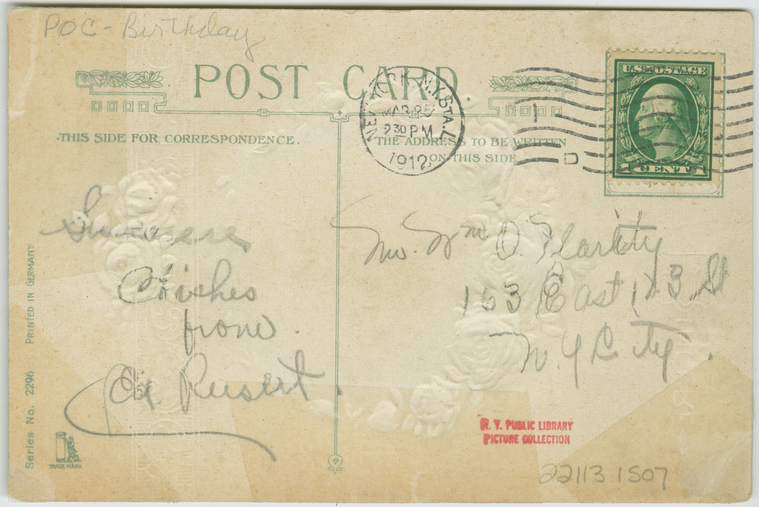 POC - Birthday
POST CARD
THIS SIDE FOR CORRESPONDENCE.
THE ADDRESS TO BE WRITTEN
ON THIS SIDE
NEW YORK, N.Y. STA. L
MAR 25
930 PM
1912
U.S. POSTAGE
1 CENT 1
Sincere
Wishes
from
Mr. Wm O. Flarity
163 East 123 St
N. Y. City.
Series No. 2296 PRINTED IN GERMANY
TRADE MARK
N. Y. PUBLIC LIBRARY
PICTURE COLLECTION
22113 1507